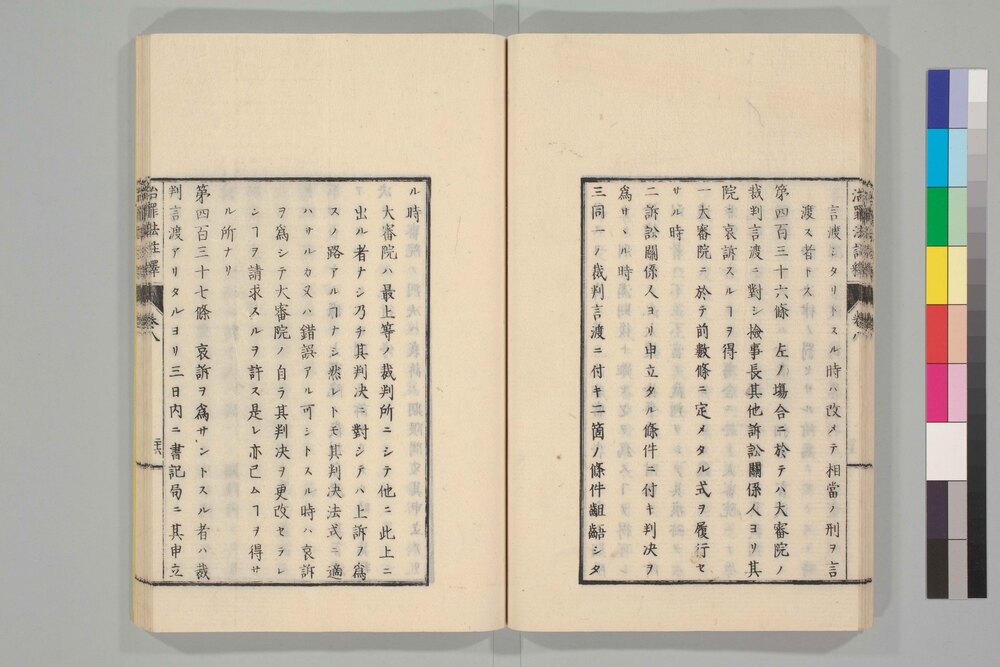 言渡ス可タリトスル時ハ改メテ相當ノ刑ヲ言
渡ス者トス
第四百三十六條 左ノ塲合ニ於テハ大審院ノ
裁判言渡ニ對シ檢事長其他訴訟關係人ヨリ其
院ニ哀訴スルヿヲ得
一大審院ニ於テ前數條ニ定メタル式ヲ履行セ
サル時
二訴訟關係人ヨリ申立タル條件ニ付キ判决ヲ
爲サヽル時
三同一ノ裁判言渡ニ付キ二箇ノ條件齟齬シタ
ル時
大審院ハ最上等ノ裁判所ニシテ他ニ此上ニ
出ル者ナシ乃チ其判决ニ對シテハ上訴ヲ爲
スノ路アル可ナシ然レトモ其判决法式ニ適
ハサルカ又ハ錯誤アル可シトスル時ハ哀訴
ヲ爲シテ大審院ノ自ラ其判决ヲ更改セラレ
ンヿヲ請求スルヲ許ス是レ亦已ムヿヲ得サ
ル所ナリ
第四百三十七條 哀訴ヲ爲サントスル者ハ裁
判言渡アリタルヨリ三日内ニ書記局ニ其申立
治罪法註釋 卷八